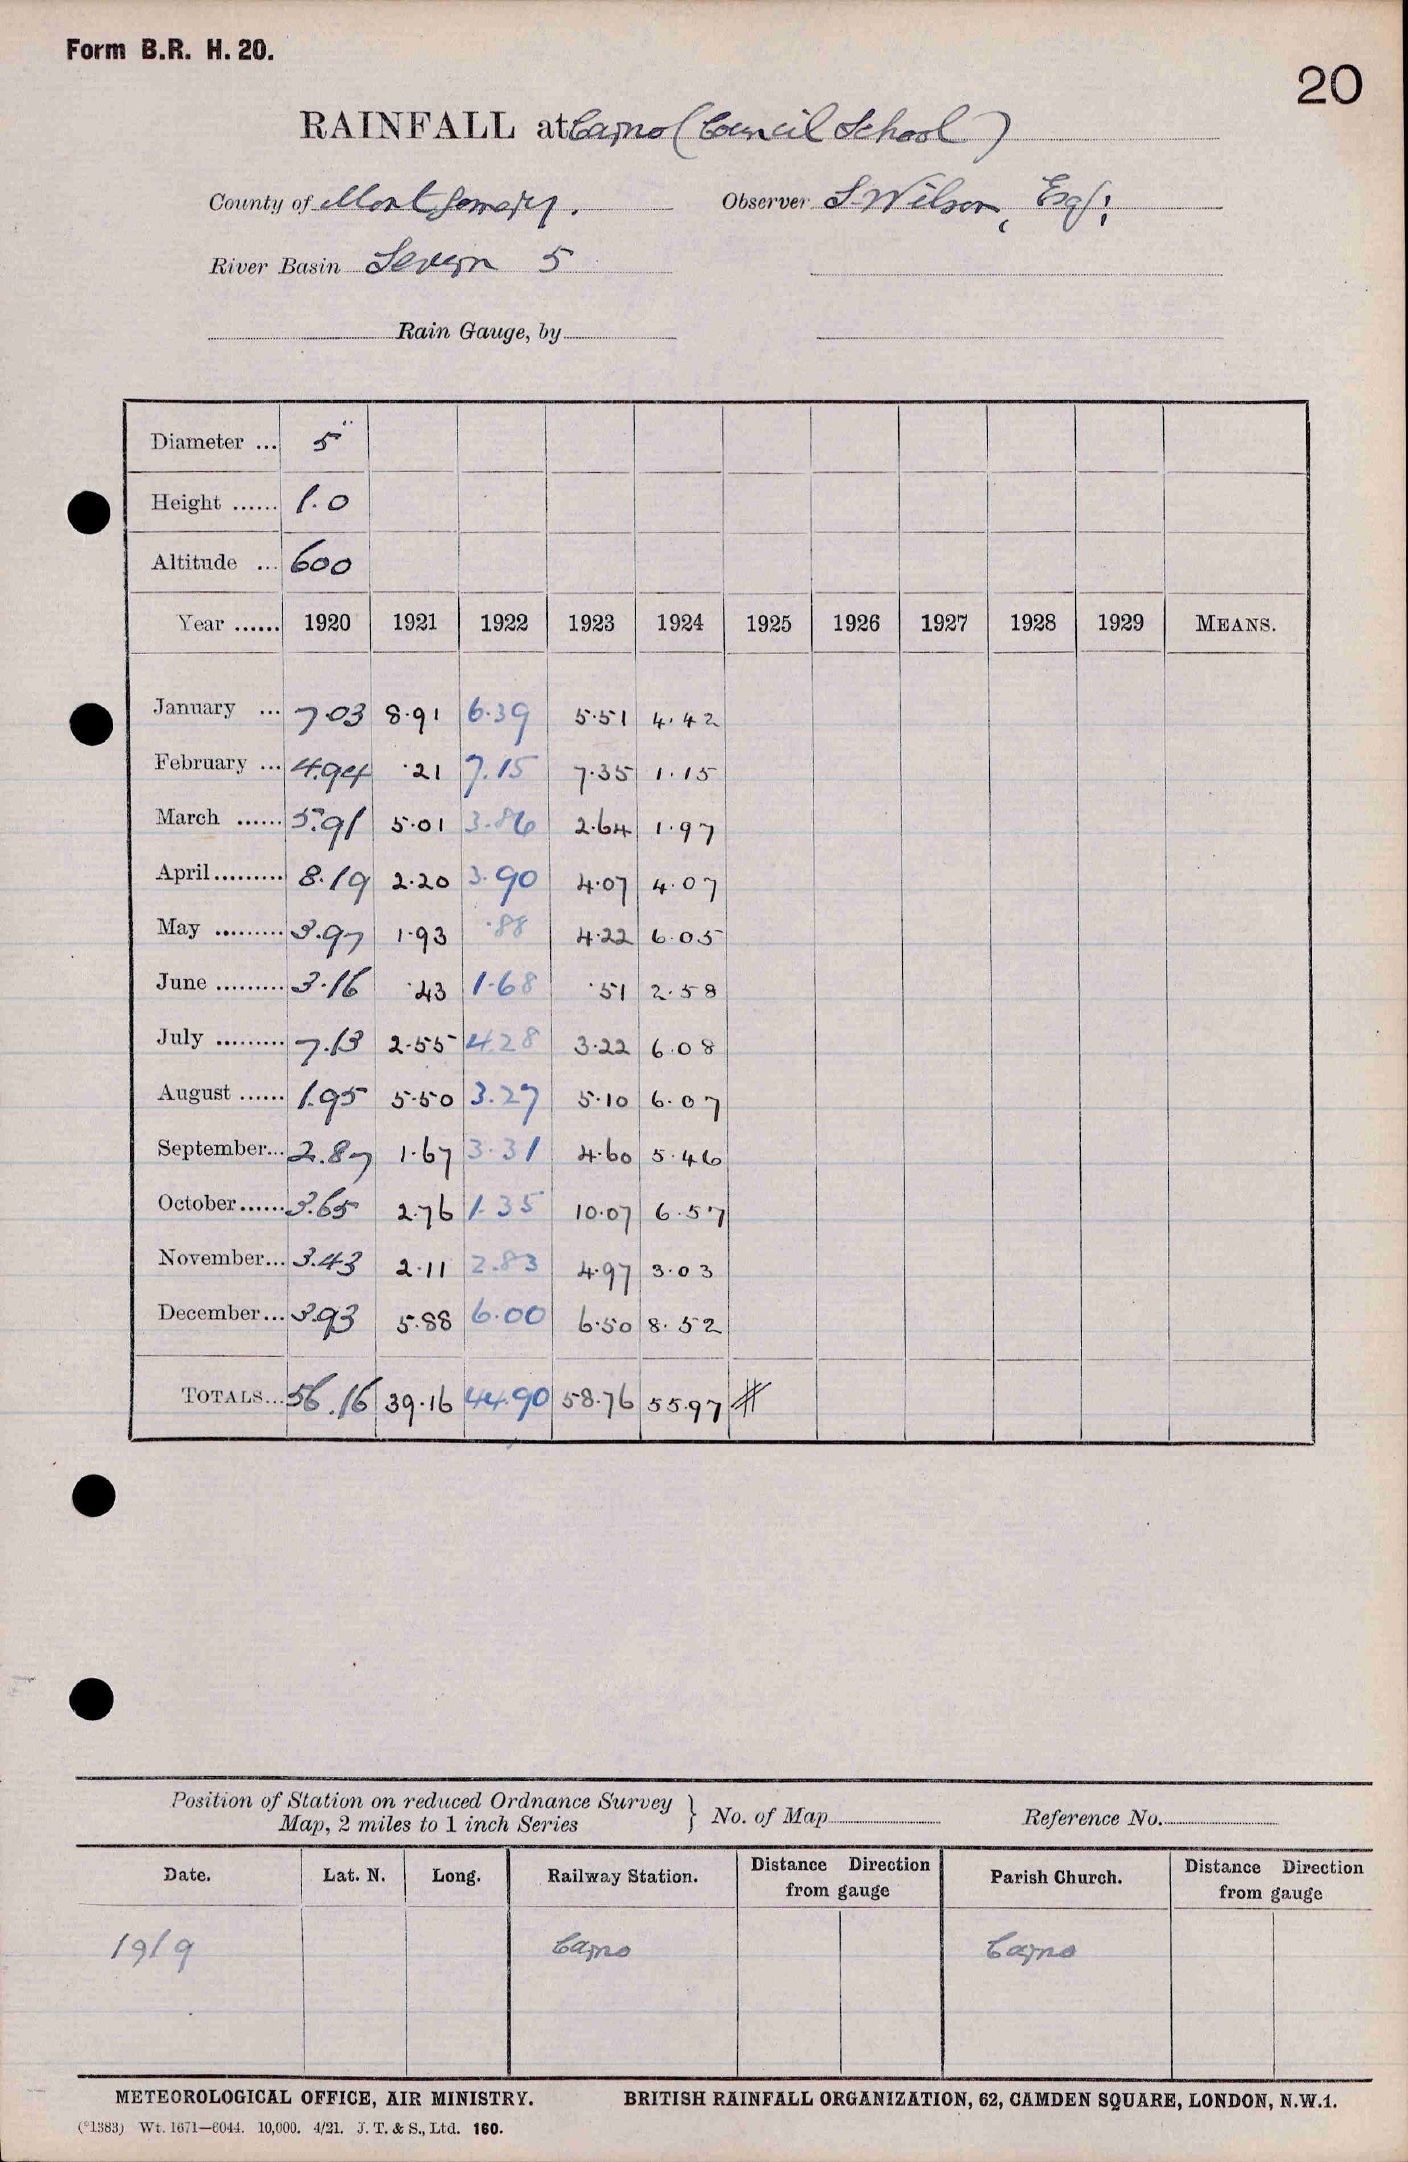 Form B.R. H. 20.
20
RAINFALL at Carno (Council School)
County of Montgomery. Observer S Wilson, Esq;
River Basin Severn 5
Rain Gauge, by
Diameter ... 5"
Height ...... 1.0
Altitude ... 600
Year ...... 1920 1921 1922 1923 1924 1925 1926 1927 1928 1929 MEANS.
January ... 7.03 8.91 6.39 5.51 4.42
February ... 4.94 .21 7.15 7.35 1.15
March ...... 5.91 5.01 3.86 2.64 1.97
April ......... 8.19 2.20 3.90 4.07 4.07
May ......... 3.97 1.93 .88 4.22 6.05
June ......... 3.16 .43 1.68 .51 2.58
July ......... 7.13 2.55 4.28 3.22 6.08
August ...... 1.95 5.50 3.27 5.10 6.07
September... 2.87 1.67 3.31 4.60 5.46
October...... 3.65 2.76 1.35 10.07 6.57
November... 3.43 2.11 2.83 4.97 3.03
December... 3.93 5.88 6.00 6.50 8.52
TOTALS... 56.16 39.16 44.90 58.76 55.97 #
Position of Station on reduced Ordnance Survey
Map, 2 miles to 1 inch Series } No. of Map Reference No.
Date. Lat. N. Long. Railway Station. Distance Direction from gauge Parish Church. Distance Direction from gauge
1919 Carno Carno
METEOROLOGICAL OFFICE, AIR MINISTRY. BRITISH RAINFALL ORGANIZATION, 62, CAMDEN SQUARE, LONDON, N.W.1.
(*1383) Wt. 1671—6044. 10,000. 4/21. J. T. & S., Ltd. 160.